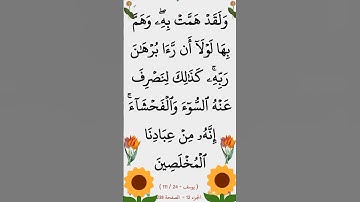 وَلَقَدْ هَمَّتْ بِهِۦ ۖ وَهَمَّ
بِهَا لَوْلَآ أَن رَّءَا بُرْهَـٰنَ
رَبِّهِۦ ۚ كَذَٰلِكَ لِنَصْرِفَ
عَنْهُ ٱلسُّوٓءَ وَٱلْفَحْشَآءَ ۚ
إِنَّهُۥ مِنْ عِبَادِنَا
ٱلْمُخْلَصِينَ
( يوسف - 24 / 111 )
الجزء 12 - الصفحة 238